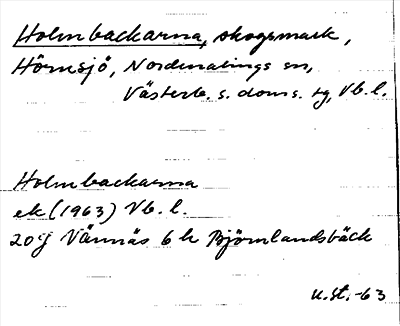 Holmbackarna, skogsmark,
Hörnsjö, Nordmalings sn,
Västerb. s. doms. tg, Vb. l.
Holmbackarna
ek (1963) Vb. l.
20 J Vännäs 6 h Björnlandsbäck
u. St. -63